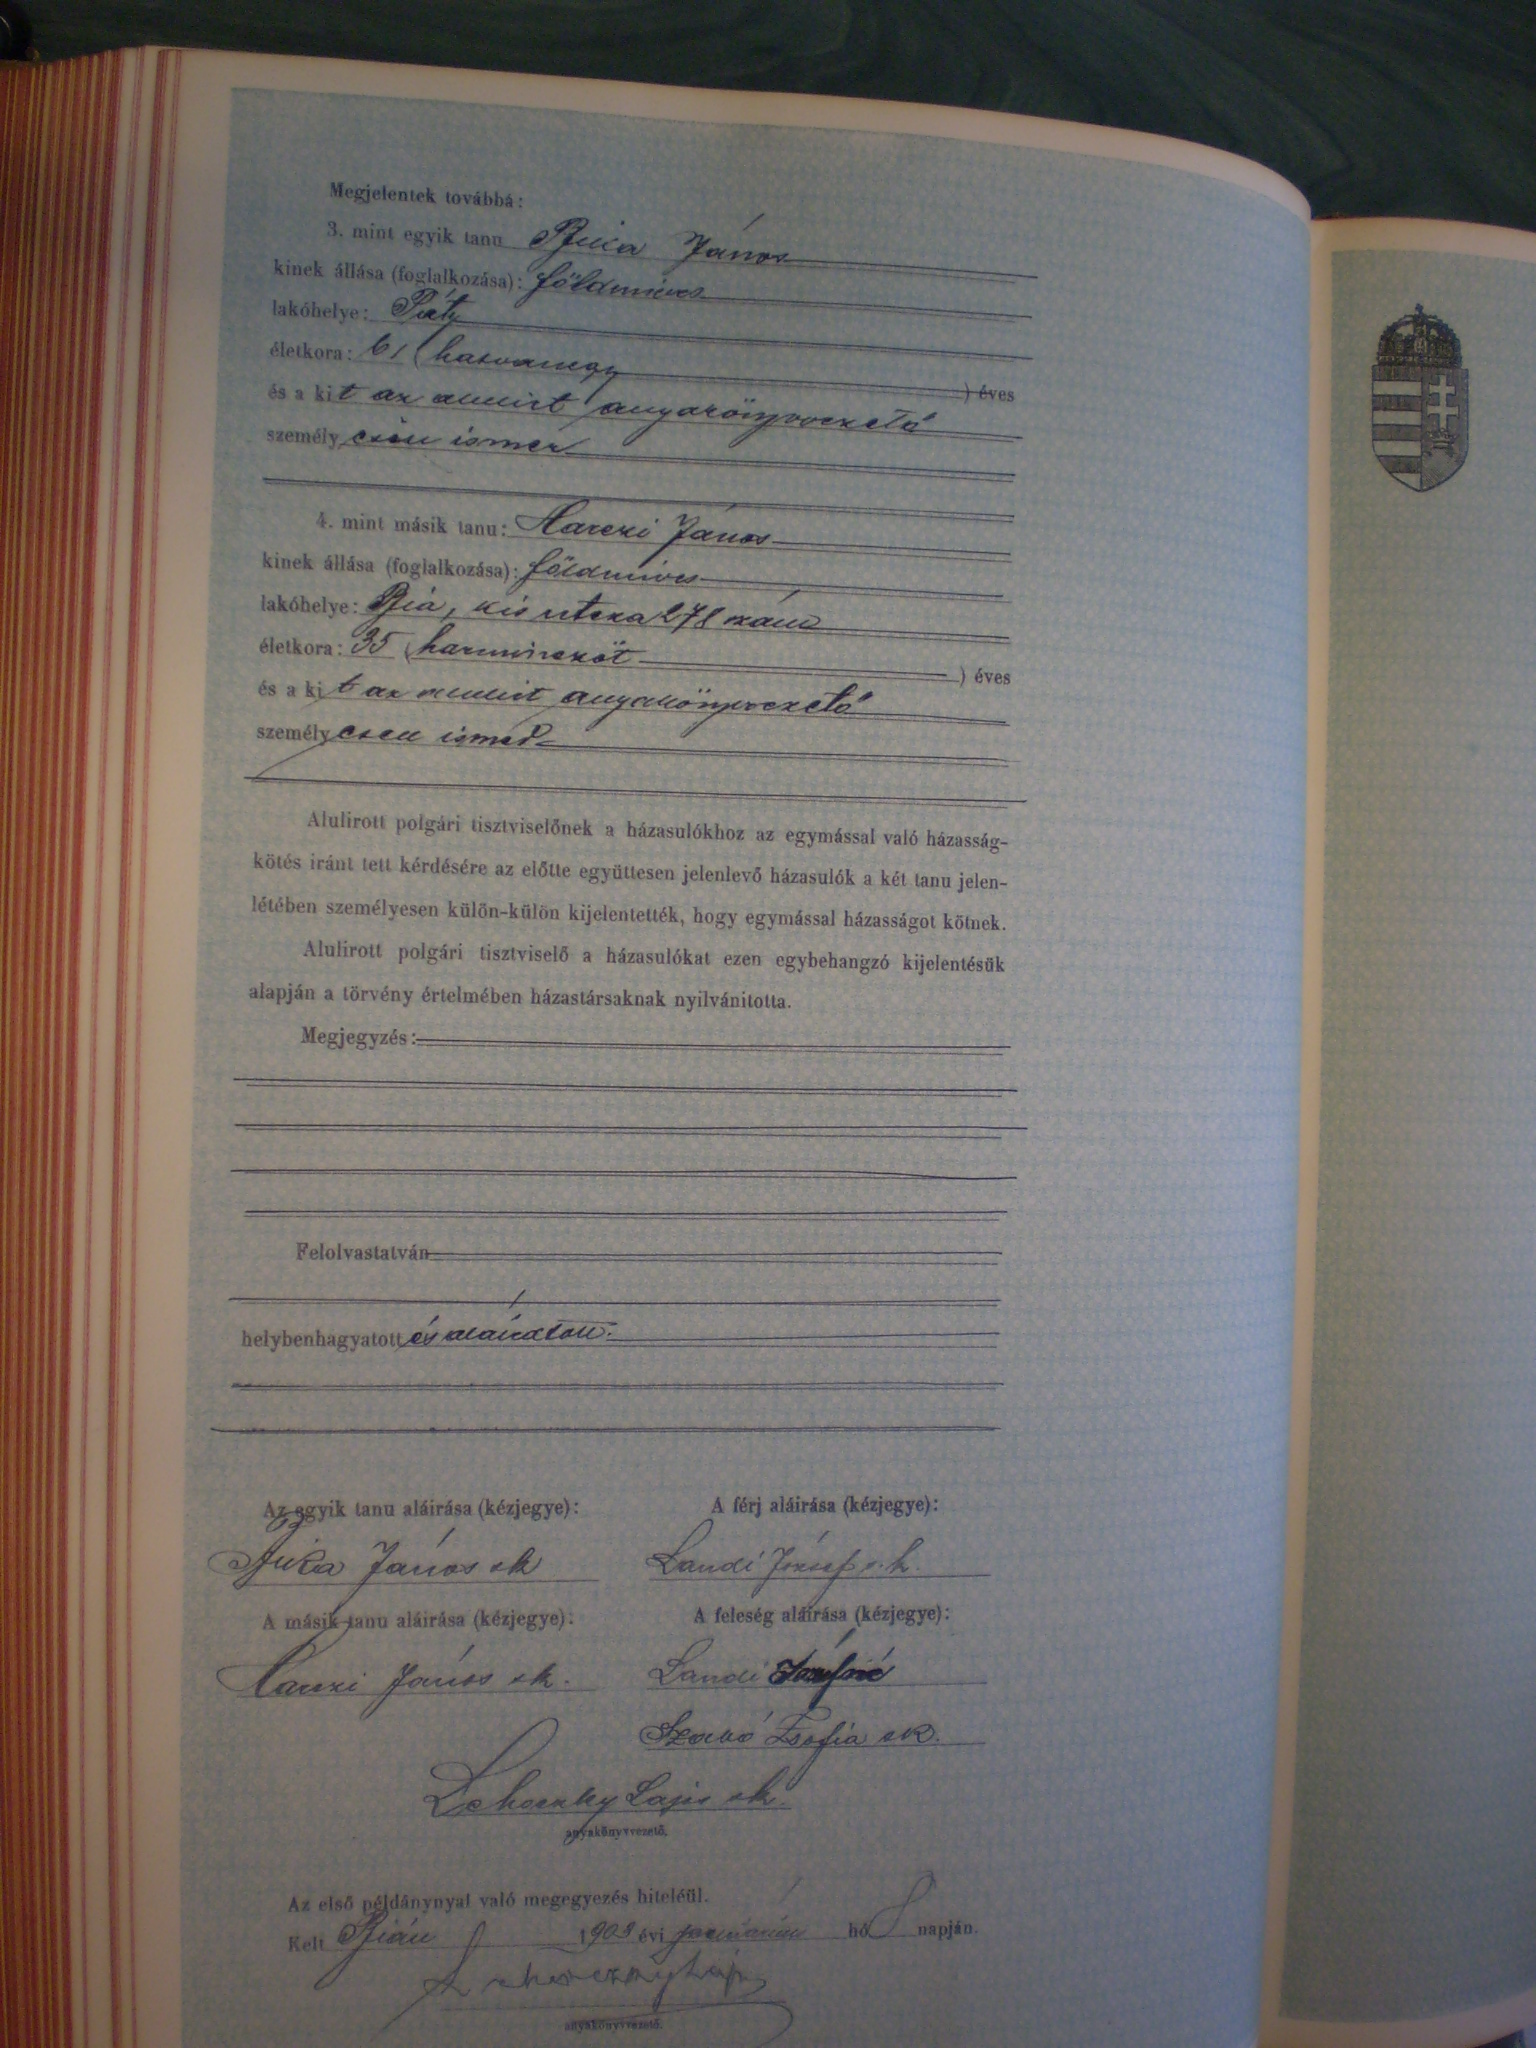 Megjelentek továbbá:
3. mint egyik tanu Bjica János
kinek állása (foglalkozása): földmives
lakóhelye: Páty
életkora: 61 (hatvanegy ) éves
és a kit az alulirt anyakönyvvezető
személyesen ismer
4. mint másik tanu: Harczi János
kinek állása (foglalkozása): földmives
lakóhelye: Bia, kis utcza 278 szám
életkora: 35 (harminczöt ) éves
és a kit az alulirt anyakönyvvezető
személyesen ismer
Alulirott polgári tisztviselőnek a házasulókhoz az egymással való házasság-
kötés iránt tett kérdésére az előtte együttesen jelenlevő házasulók a két tanu jelen-
létében személyesen külön-külön kijelentették, hogy egymással házasságot kötnek.
Alulirott polgári tisztviselő a házasulókat ezen egybehangzó kijelentésük
alapján a törvény értelmében házastársaknak nyilvánitotta.
Megjegyzés:
Felolvastatván
helybenhagyatott és aláiratott.
Az egyik tanu aláirása (kézjegye): A férj aláirása (kézjegye):
János sk Landi József s.k.
A másik tanu aláirása (kézjegye): A feleség aláirása (kézjegye):
Harczi János sk. Landi Józsefné
Szabó Zsofia sk.
Lehoczky Lajos sk.
anyakönyvvezető.
Az első példánynyal való megegyezés hiteléül.
Kelt Bián 1908 évi január hó 8 napján.
Lehoczky Lajos
anyakönyvvezető.